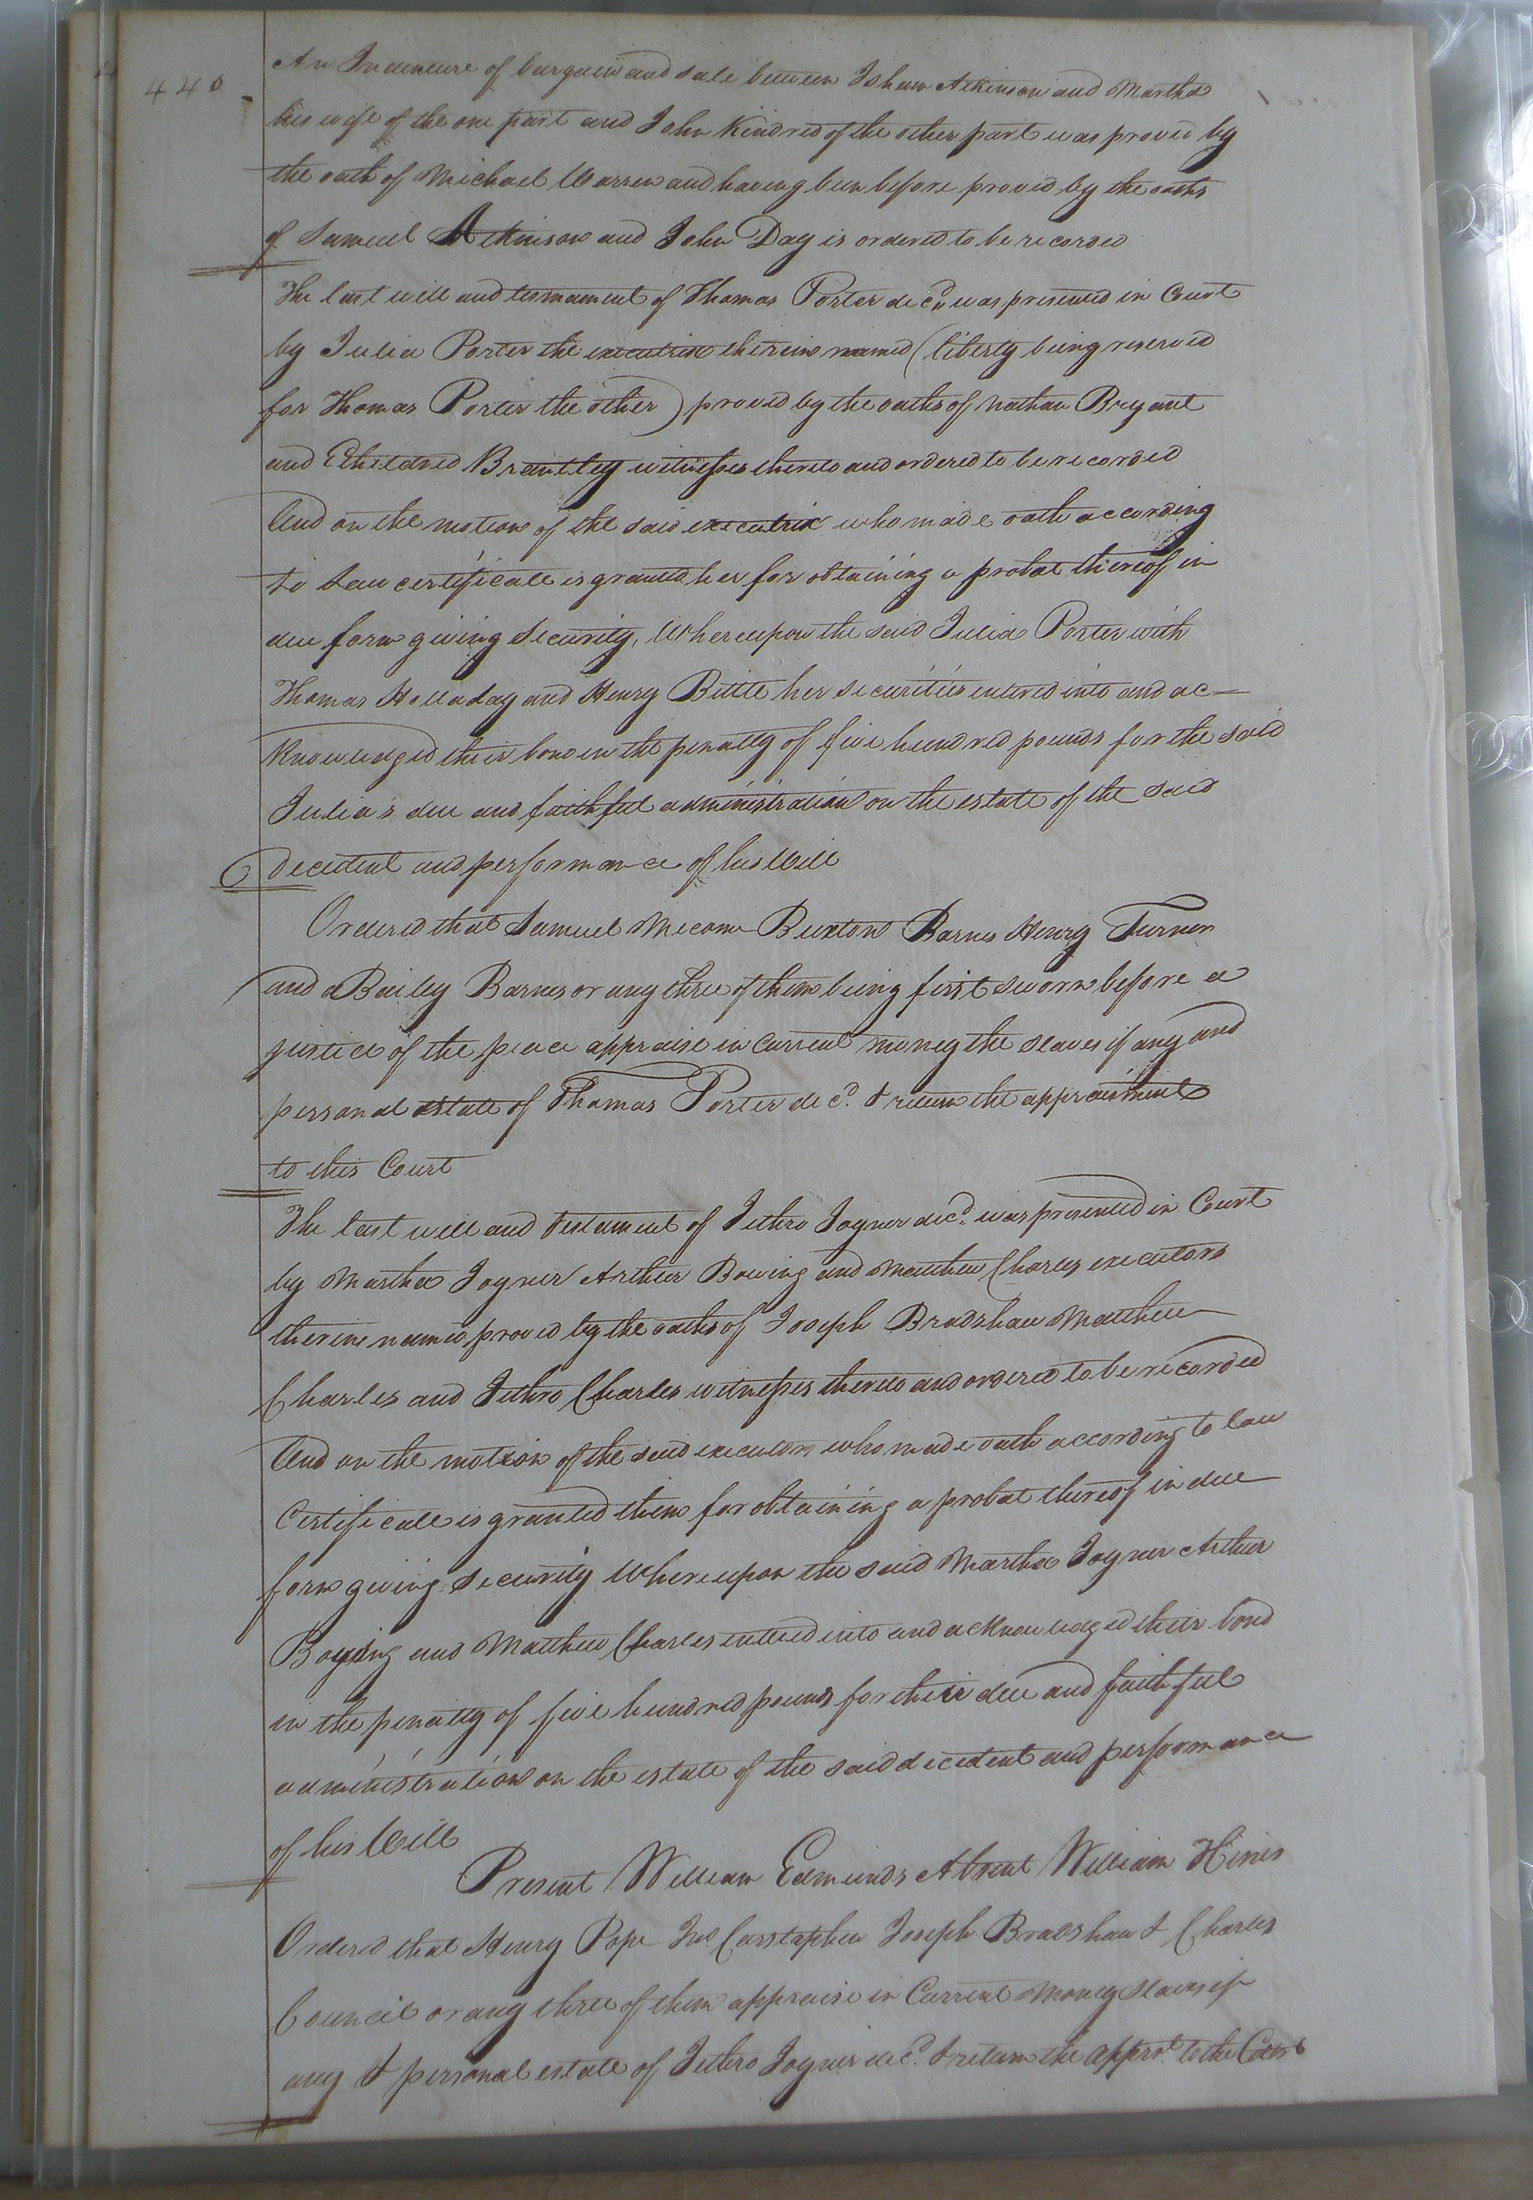 440
An Indenture of bargain and sale between Isham Atkinson and Martha
his wife of the one part and John Kindred of the other part was proved by
the oath of Michael Warren and having been before proved by the oaths
of Samuel Atkinson and John Day is ordered to be recorded
The last will and testament of Thomas Porter decd. was presented in Court
by Julia Porter the executrix therein named (liberty being reserved
for Thomas Porter the other) proved by the oaths of Nathan Bryant
and Etheldred Brantley witnesses thereto and ordered to be recorded
And on the motion of the said executrix who made oath according
to Law certificate is granted her for obtaining a probat thereof in
due form giving security, Whereupon the said Julia Porter with
Thomas Holladay and Henry Bittle her securities entered into and ac-
knowledged their bond in the penalty of five hundred pounds for the said
Julia's due and faithful administration on the estate of the said
decedent and performance of his Will
Ordered that Samuel Mecom Buxton Barnes Henry Turner
and Bailey Barnes or any three of them being first sworn before a
justice of the peace appraise in Current money the slaves if any and
personal estate of Thomas Porter decd. & return the appraisment
to this Court
The last will and testament of Jethro Joyner decd. was presented in Court
by Martha Joyner Arthur Bowing and Matthew Charles executors
therein named, proved by the oaths of Joseph Bradshaw Matthew
Charles and Jethro Charles witnesses thereto and ordered to be recorded
And on the motion of the said executors who made oath according to law
Certificate is granted them for obtaining a probat thereof in due
form giving security Whereupon the said Martha Joyner Arthur
and Matthew Charles entered into and acknowledged their bond
in the penalty of five hundred pounds for their due and faithful
administration on the estate of the said decedent and performance
of his Will
Present William Edmunds Absent William Hines
Ordered that Henry Pope Jno Carstaphen Joseph Bradshaw & Charles
Council or any three of them appraise in Current Money slaves if
any & personal estate of Jethro Joyner decd. & return the apprt. to the Court